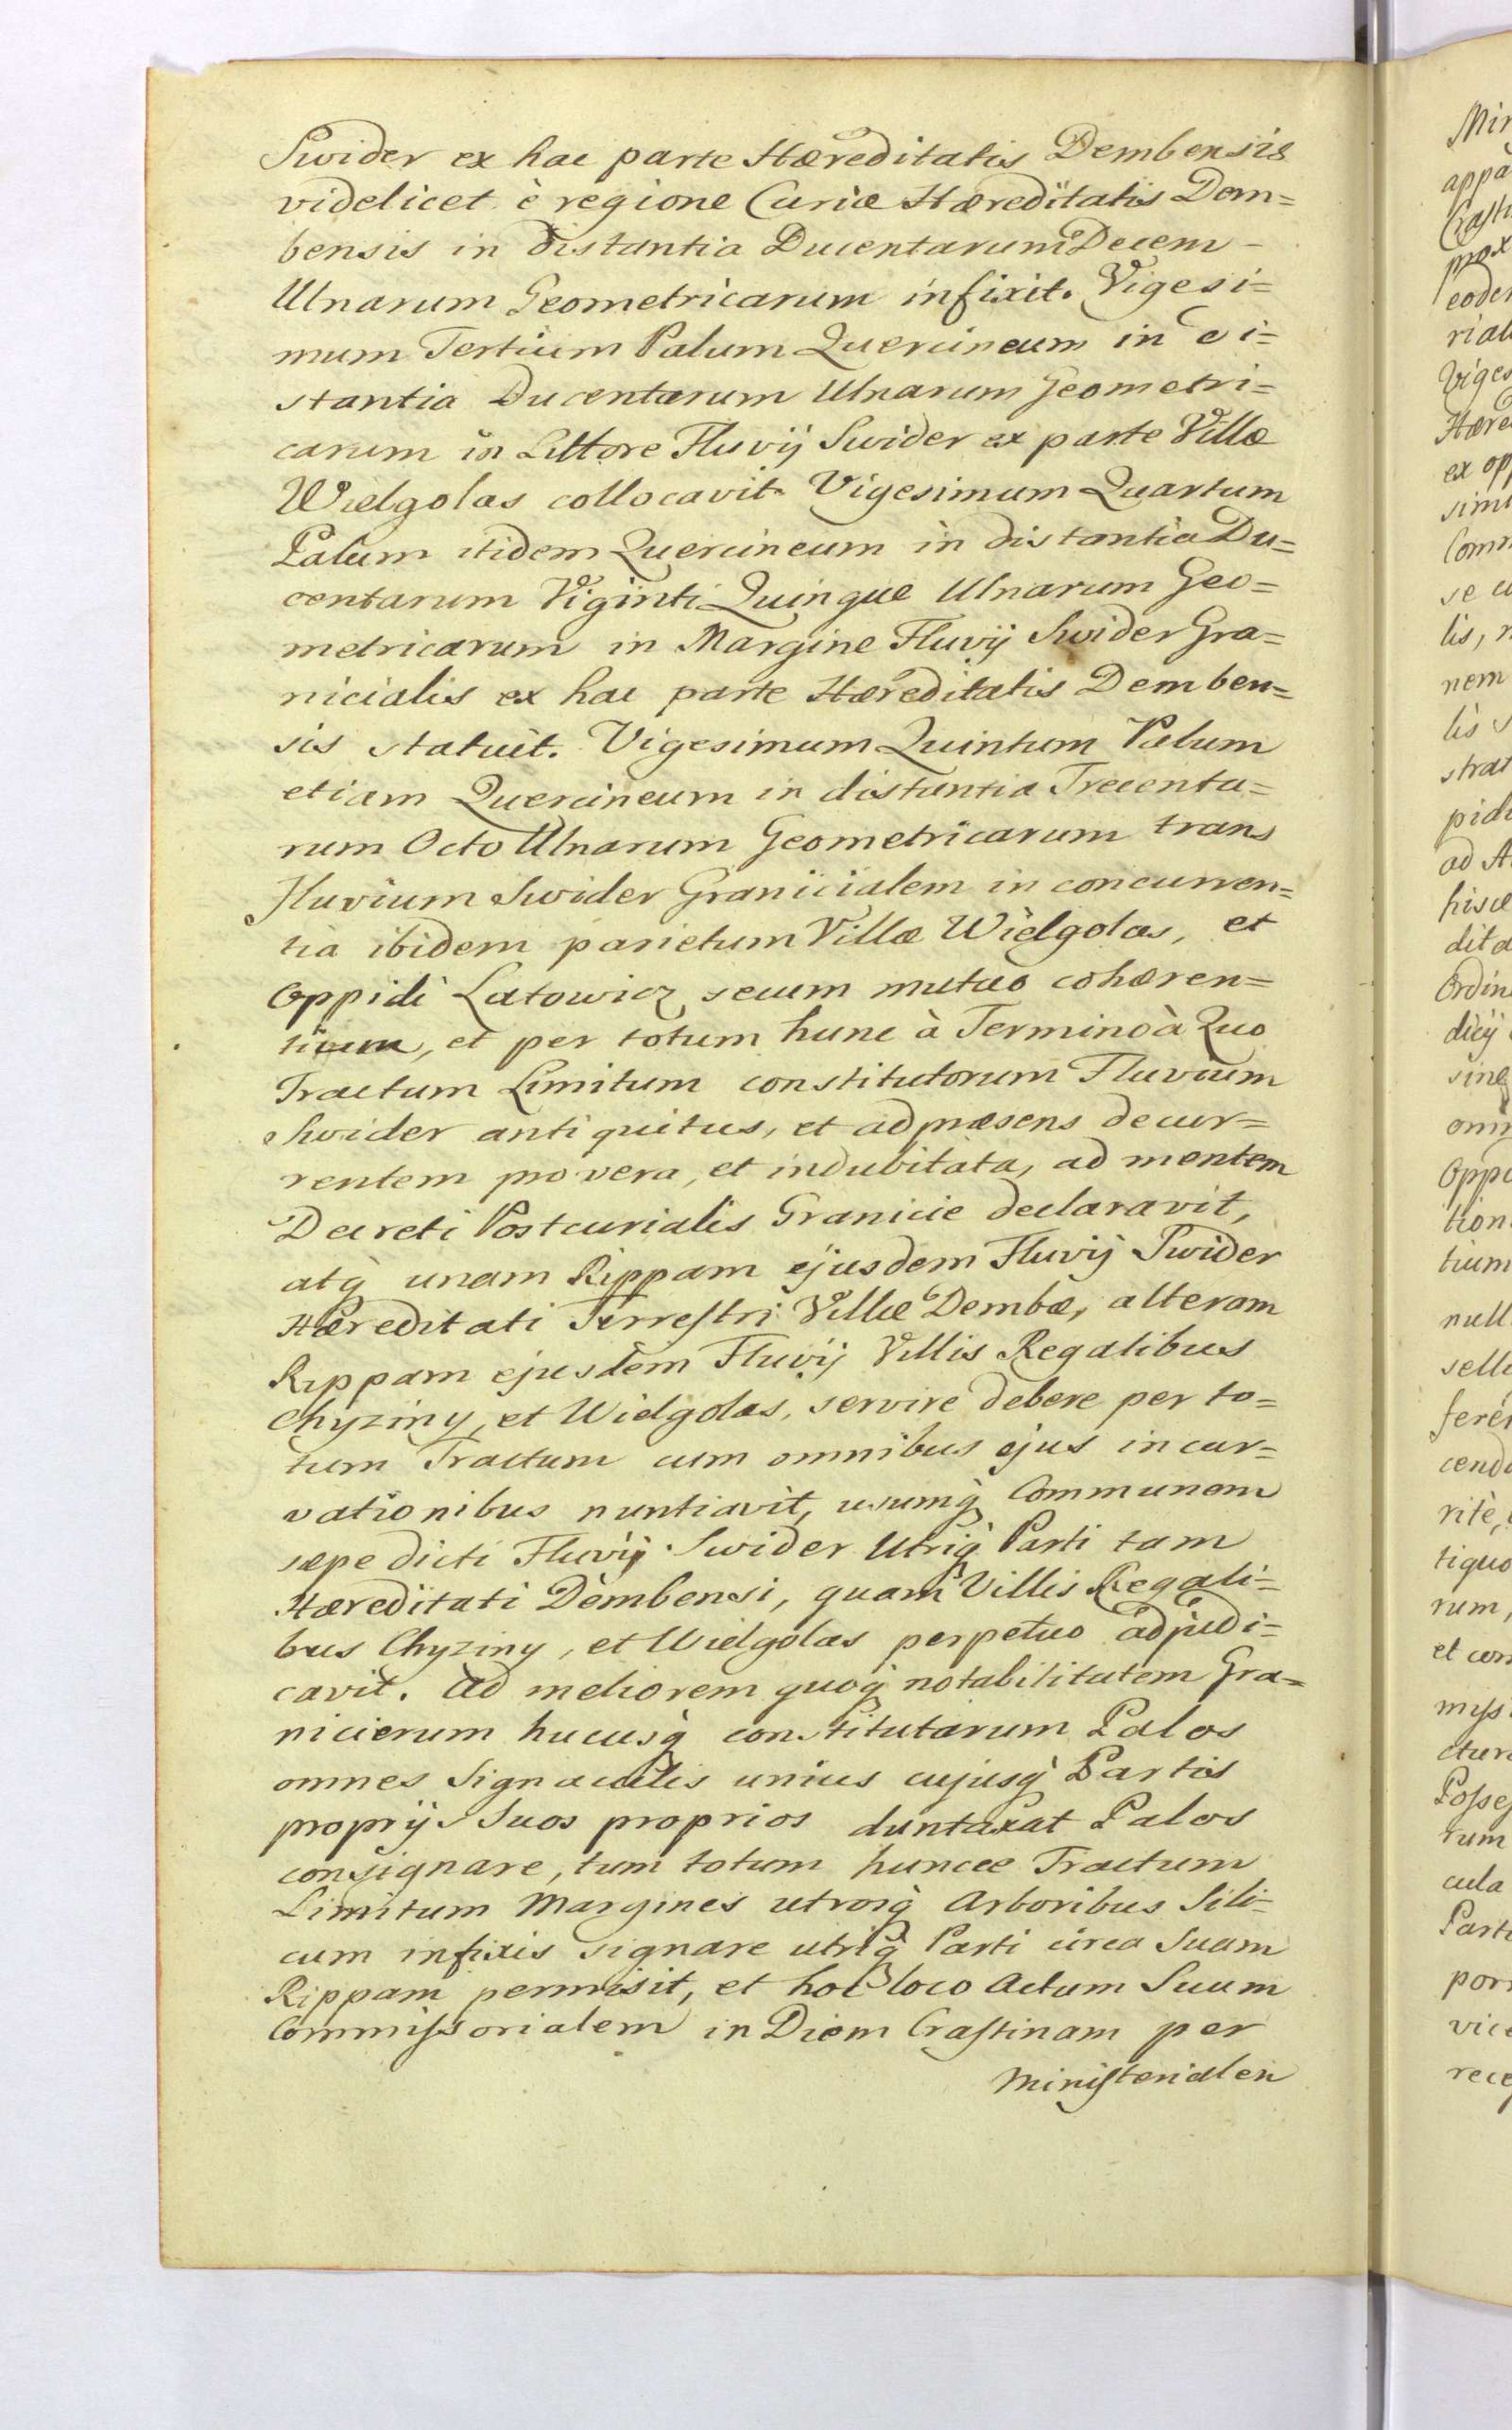 Swider ex hac parte Hæreditatis Dembensis
videlicet è regione Curiæ Hæreditatis Dem=
bensis in distantia Ducentarum Decem -
Ulnarum Geometricarum infixit. Vigesi=
mum Tertium Palum Quercineum in di=
stantia Ducentarum Ulnarum Geometri=
carum in Littore Fluvij Swider ex parte Villæ
Wielgolas collocavit. Vigesimum Quartum
Palum itidem Quercineum in distantia Du=
centarum Viginti Quinque Ulnarum Geo=
metricarum in Margine Fluvij Swider Gra=
nicialis ex hac parte Hæreditatis Demben=
sis statuit. Vigesimum Quintum Palum
etiam Quercineum in distantia Trecenta=
rum Octo Ulnarum Geometricarum trans
Fluvium Swider Granicialem in concurren=
tia ibidem parietum Villæ Wielgolas, et
Oppidi Latowicz secum mutuo cohæren=
tium, et per totum hunc à Termino à Quo
Tractum Limitum constitutorum Fluvium
Swider antiquitus, et ad præsens decur=
rentem pro vera, et indubitata, ad mentem
Decreti Postcurialis Granicie declaravit,
atq̀ unam Rippam ejusdem Fluvij Swider
Hæreditati Terrestri Villæ Dembæ, alteram
Rippam ejusdem Fluvij Villis Regalibus
Chyziny, et Wielgolas, servire debere per to=
tum Tractum cum omnibus ejus incur=
vationibus nuntiavit, usumq̀ Communem
sæpe dicti Fluvij Swider Utriq̀ Parti tam
Hæreditati Dembensi, quam Villis Regali=
bus Chyziny, et Wielgolas perpetuo adjudi=
cavit. Ad meliorem quoq̀ notabilitatem Gra=
nicierum hucusq̀ constitutarum Palos
omnes Signaculis unius cujusq̀ Partis
proprijs Suos proprios duntaxat Palos
consignare, tum totum huncce Tractum
Limitum Margines utrosq̀ Arboribus Sili=
cum infixis signare utriq̀ Parti circa Suam
Rippam permisit, et hoc loco Actum Suum
Commissorialem in Diem Crastinam per
Ministerialem